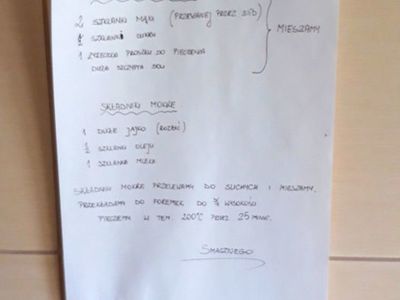 2 SZKLANKI MĄKI (PRZESIANEJ PRZEZ SITO)
SZKLANKI CUKRU
1 ŁYŻECZKA PROSZKU DO PIECZENIA
DUŻA SZCZYPTA SOLI
MIESZAMY
SKŁADNIKI MOKRE
1 DUŻE JAJKO (ROZBIĆ)
1/2 SZKLANKI OLEJU
1 SZKLANKA MLEKA
SKŁADNIKI MOKRE PRZELEWAMY DO SUCHYCH I MIESZAMY.
PRZEKŁADAMY DO FOREMEK DO 3/4 WYSOKOŚCI
PIECZEMY W TEM. 200°C PRZEZ 25 MINUT.
SMACZNEGO